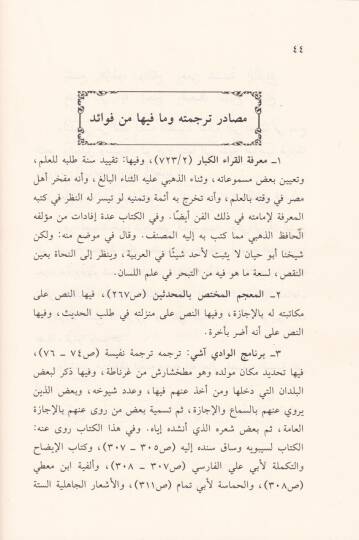 ٤٤
مصادر ترجمته وما فيها من فوائد
١ـ معرفة القراء الكبار (٧٢٣/٢)، وفيها: تقييد سنة طلبه للعلم،
وتعيين بعض مسموعاته، وثناء الذهبي عليه الثناء البالغ، وأنه مفخر أهل
مصر في وقته بالعلم، وأنه تخرج به أئمة وتمنيه لو تيسر له النظر في كتبه
المعرفة لإمامته في ذلك الفن أيضًا. وفي الكتاب عدة إفادات من مؤلفه
الحافظ الذهبي مما كتب به إليه المصنف. وقال في موضع منه: ولكن
شيخنا أبو حيان لا يثبت لأحد شيئًا في العربية، وينظر إلى النحاة بعين
النقص، لسعة ما هو فيه من التبحر في علم اللسان.
٢ـ المعجم المختص بالمحدثين (ص٢٦٧)، فيها النص على
مكاتبته له بالإجازة، وفيها النص على منزلته في طلب الحديث، وفيها
النص على أنه أضر بأخرة.
٣ـ برنامج الوادي آشي: ترجمه ترجمة نفيسة (ص٧٤ ـ ٧٦)،
فيها تحديد مكان مولده وهو مطخشارش من غرناطة، وفيها ذكر لبعض
البلدان التي دخلها ومن أخذ عنهم فيها، وعدد شيوخه، وبعض الذين
يروي عنهم بالسماع والإجازة، ثم تسمية بعض من روى عنهم بالإجازة
العامة، ثم بعض شعره الذي أنشده إياه. وفي هذا الكتاب روى عنه:
الكتاب لسيبويه وساق سنده إليه (ص٣٠٥ ـ ٣٠٧)، وكتاب الإيضاح
والتكملة لأبي علي الفارسي (ص٣٠٧ ـ ٣٠٨)، وألفية ابن معطي
(ص٣٠٨)، والحماسة لأبي تمام (ص٣١١)، والأشعار الجاهلية الستة